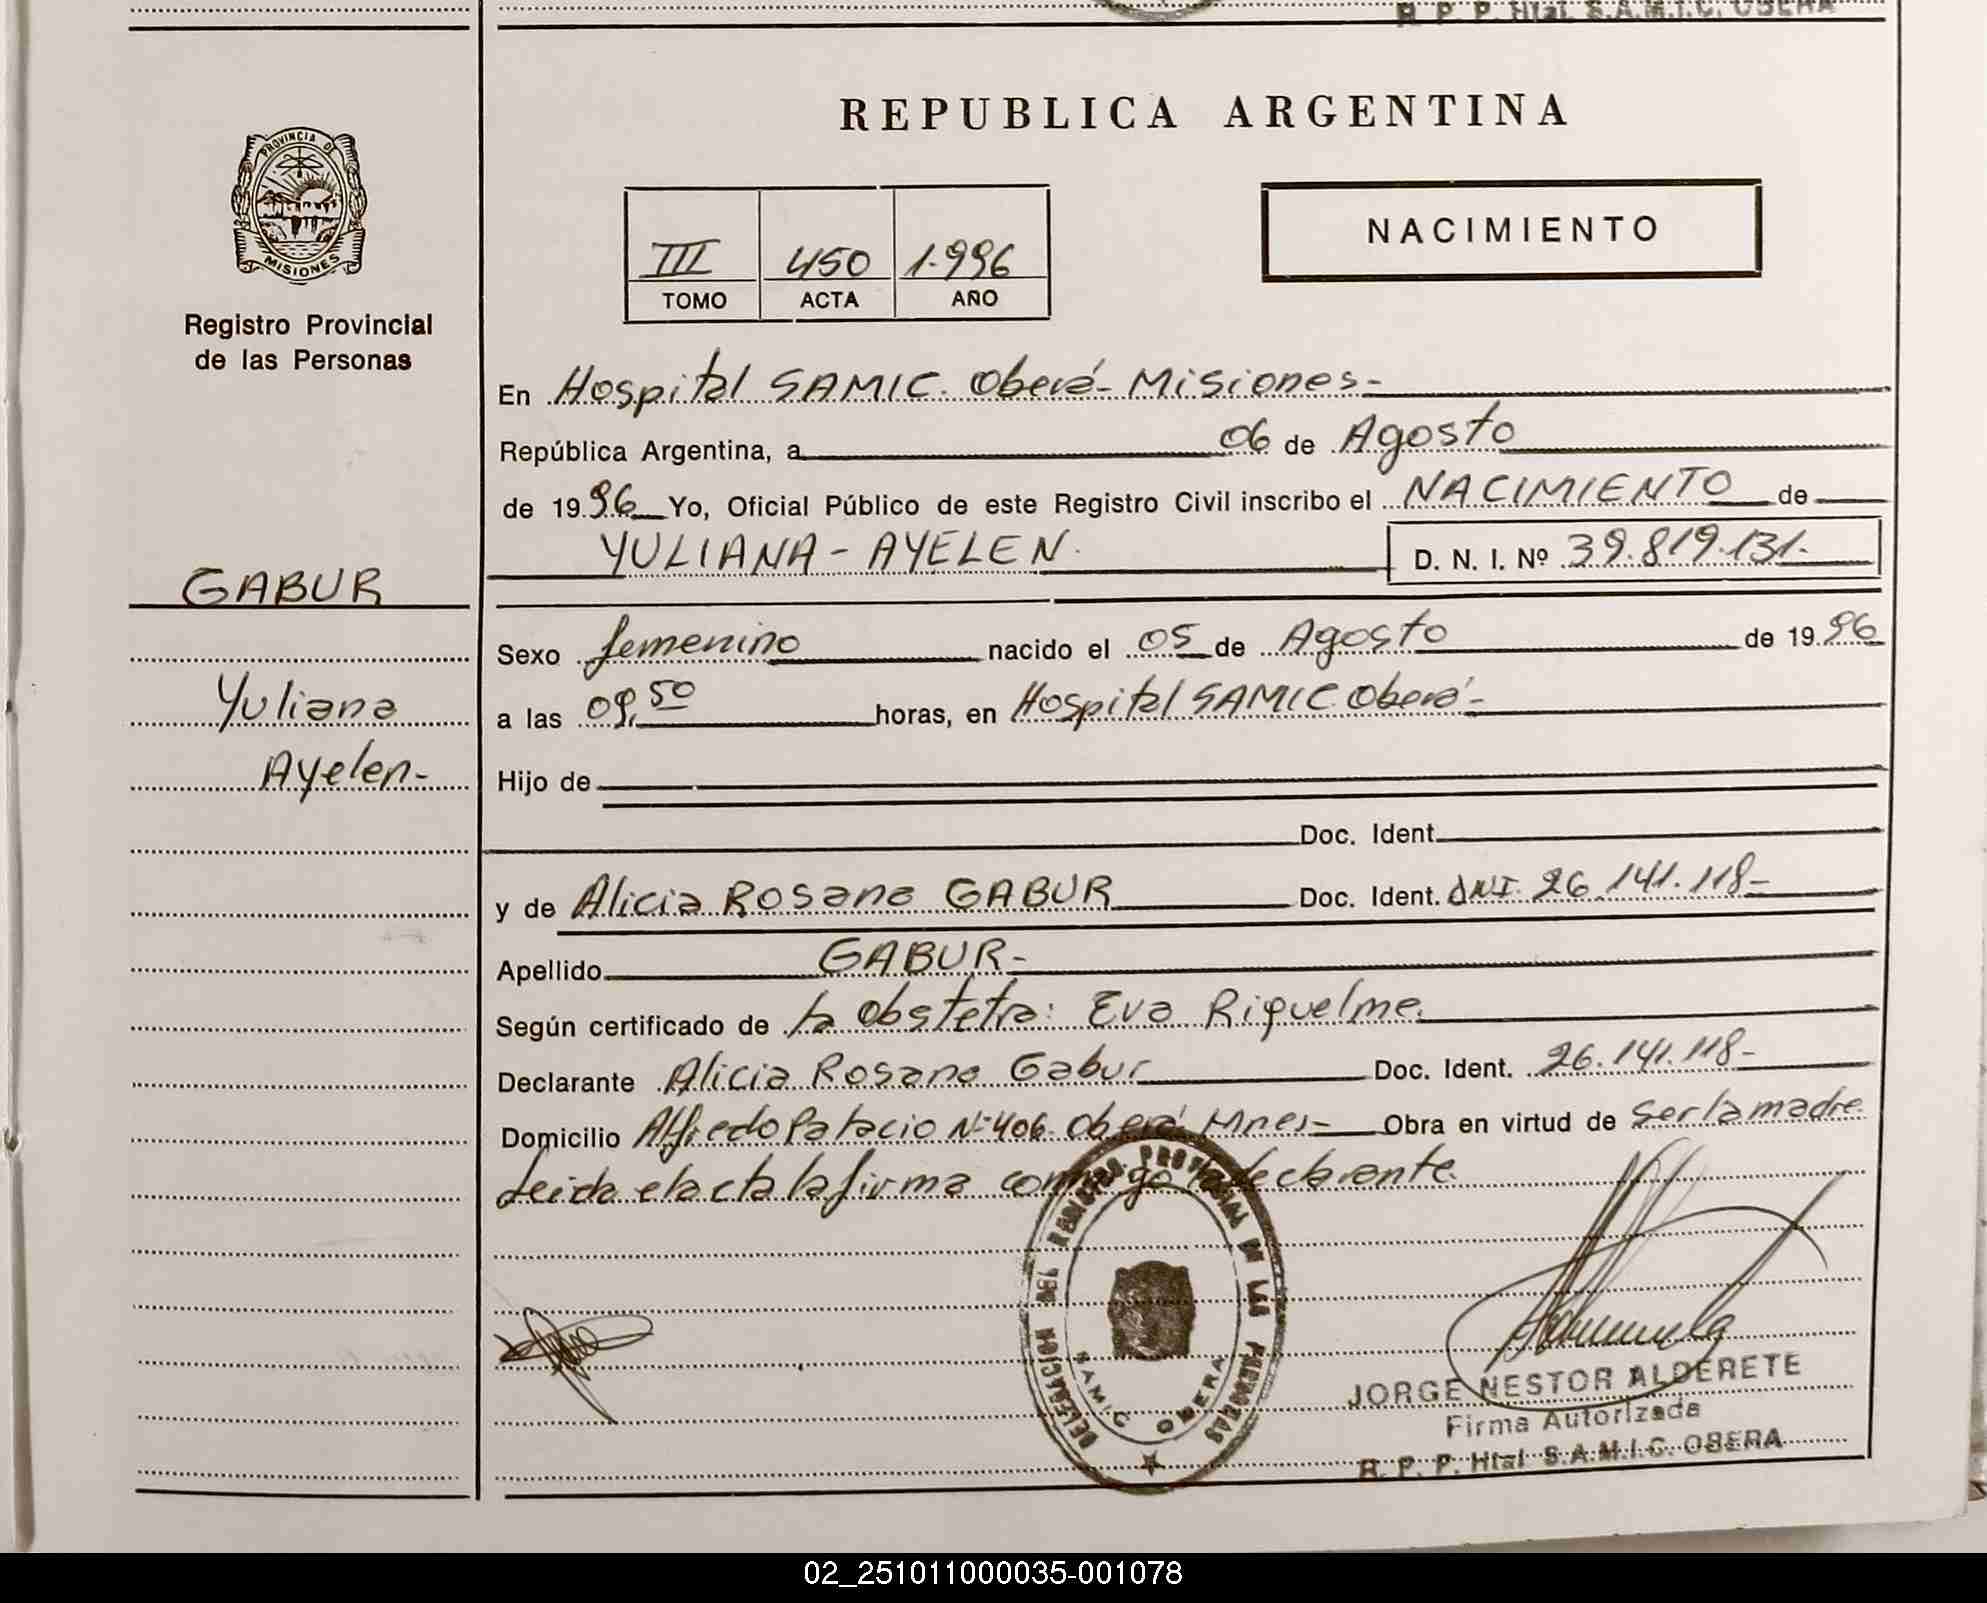 R. P. P. Htal. S.A.M.I.C. OBERA
REPUBLICA ARGENTINA
PROVINCIA DE
MISIONES
Registro Provincial
de las Personas
III 450 1.996
TOMO ACTA AÑO
NACIMIENTO
En Hospital SAMIC. Oberá- Misiones-
República Argentina, a 06 de Agosto
de 1996 Yo, Oficial Público de este Registro Civil inscribo el NACIMIENTO de
YULIANA - AYELEN. D. N. I. Nº 39.819.131.
GABUR
Yuliana
Ayelen-
Sexo femenino nacido el 05 de Agosto de 1996
a las 09,50 horas, en Hospital SAMIC Oberá-
Hijo de
Doc. Ident.
y de Alicia Rosana GABUR Doc. Ident. DNI. 26.141.118-
Apellido GABUR-
Según certificado de la obstetra: Eva Riquelme.
Declarante Alicia Rosana Gabur Doc. Ident. 26.141.118-
Domicilio Alfredo Palacio Nº 406. Oberá Mnes- Obra en virtud de ser la madre
Leida el acta la firma conmigo la declarante.
DELEGACION DEL REGISTRO PROVINCIAL DE LAS PERSONAS
SAMIC OBERA
JORGE NESTOR ALDERETE
Firma Autorizada
R. P. P. Htal. S.A.M.I.C. OBERA
02_251011000035-001078